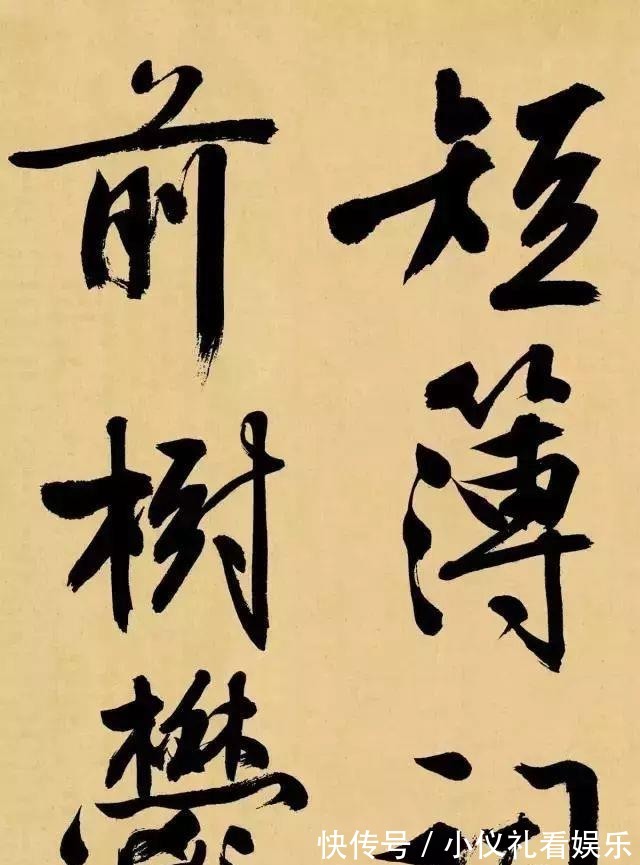 短簿
前樹鬱
快传号/小仪礼看娱乐